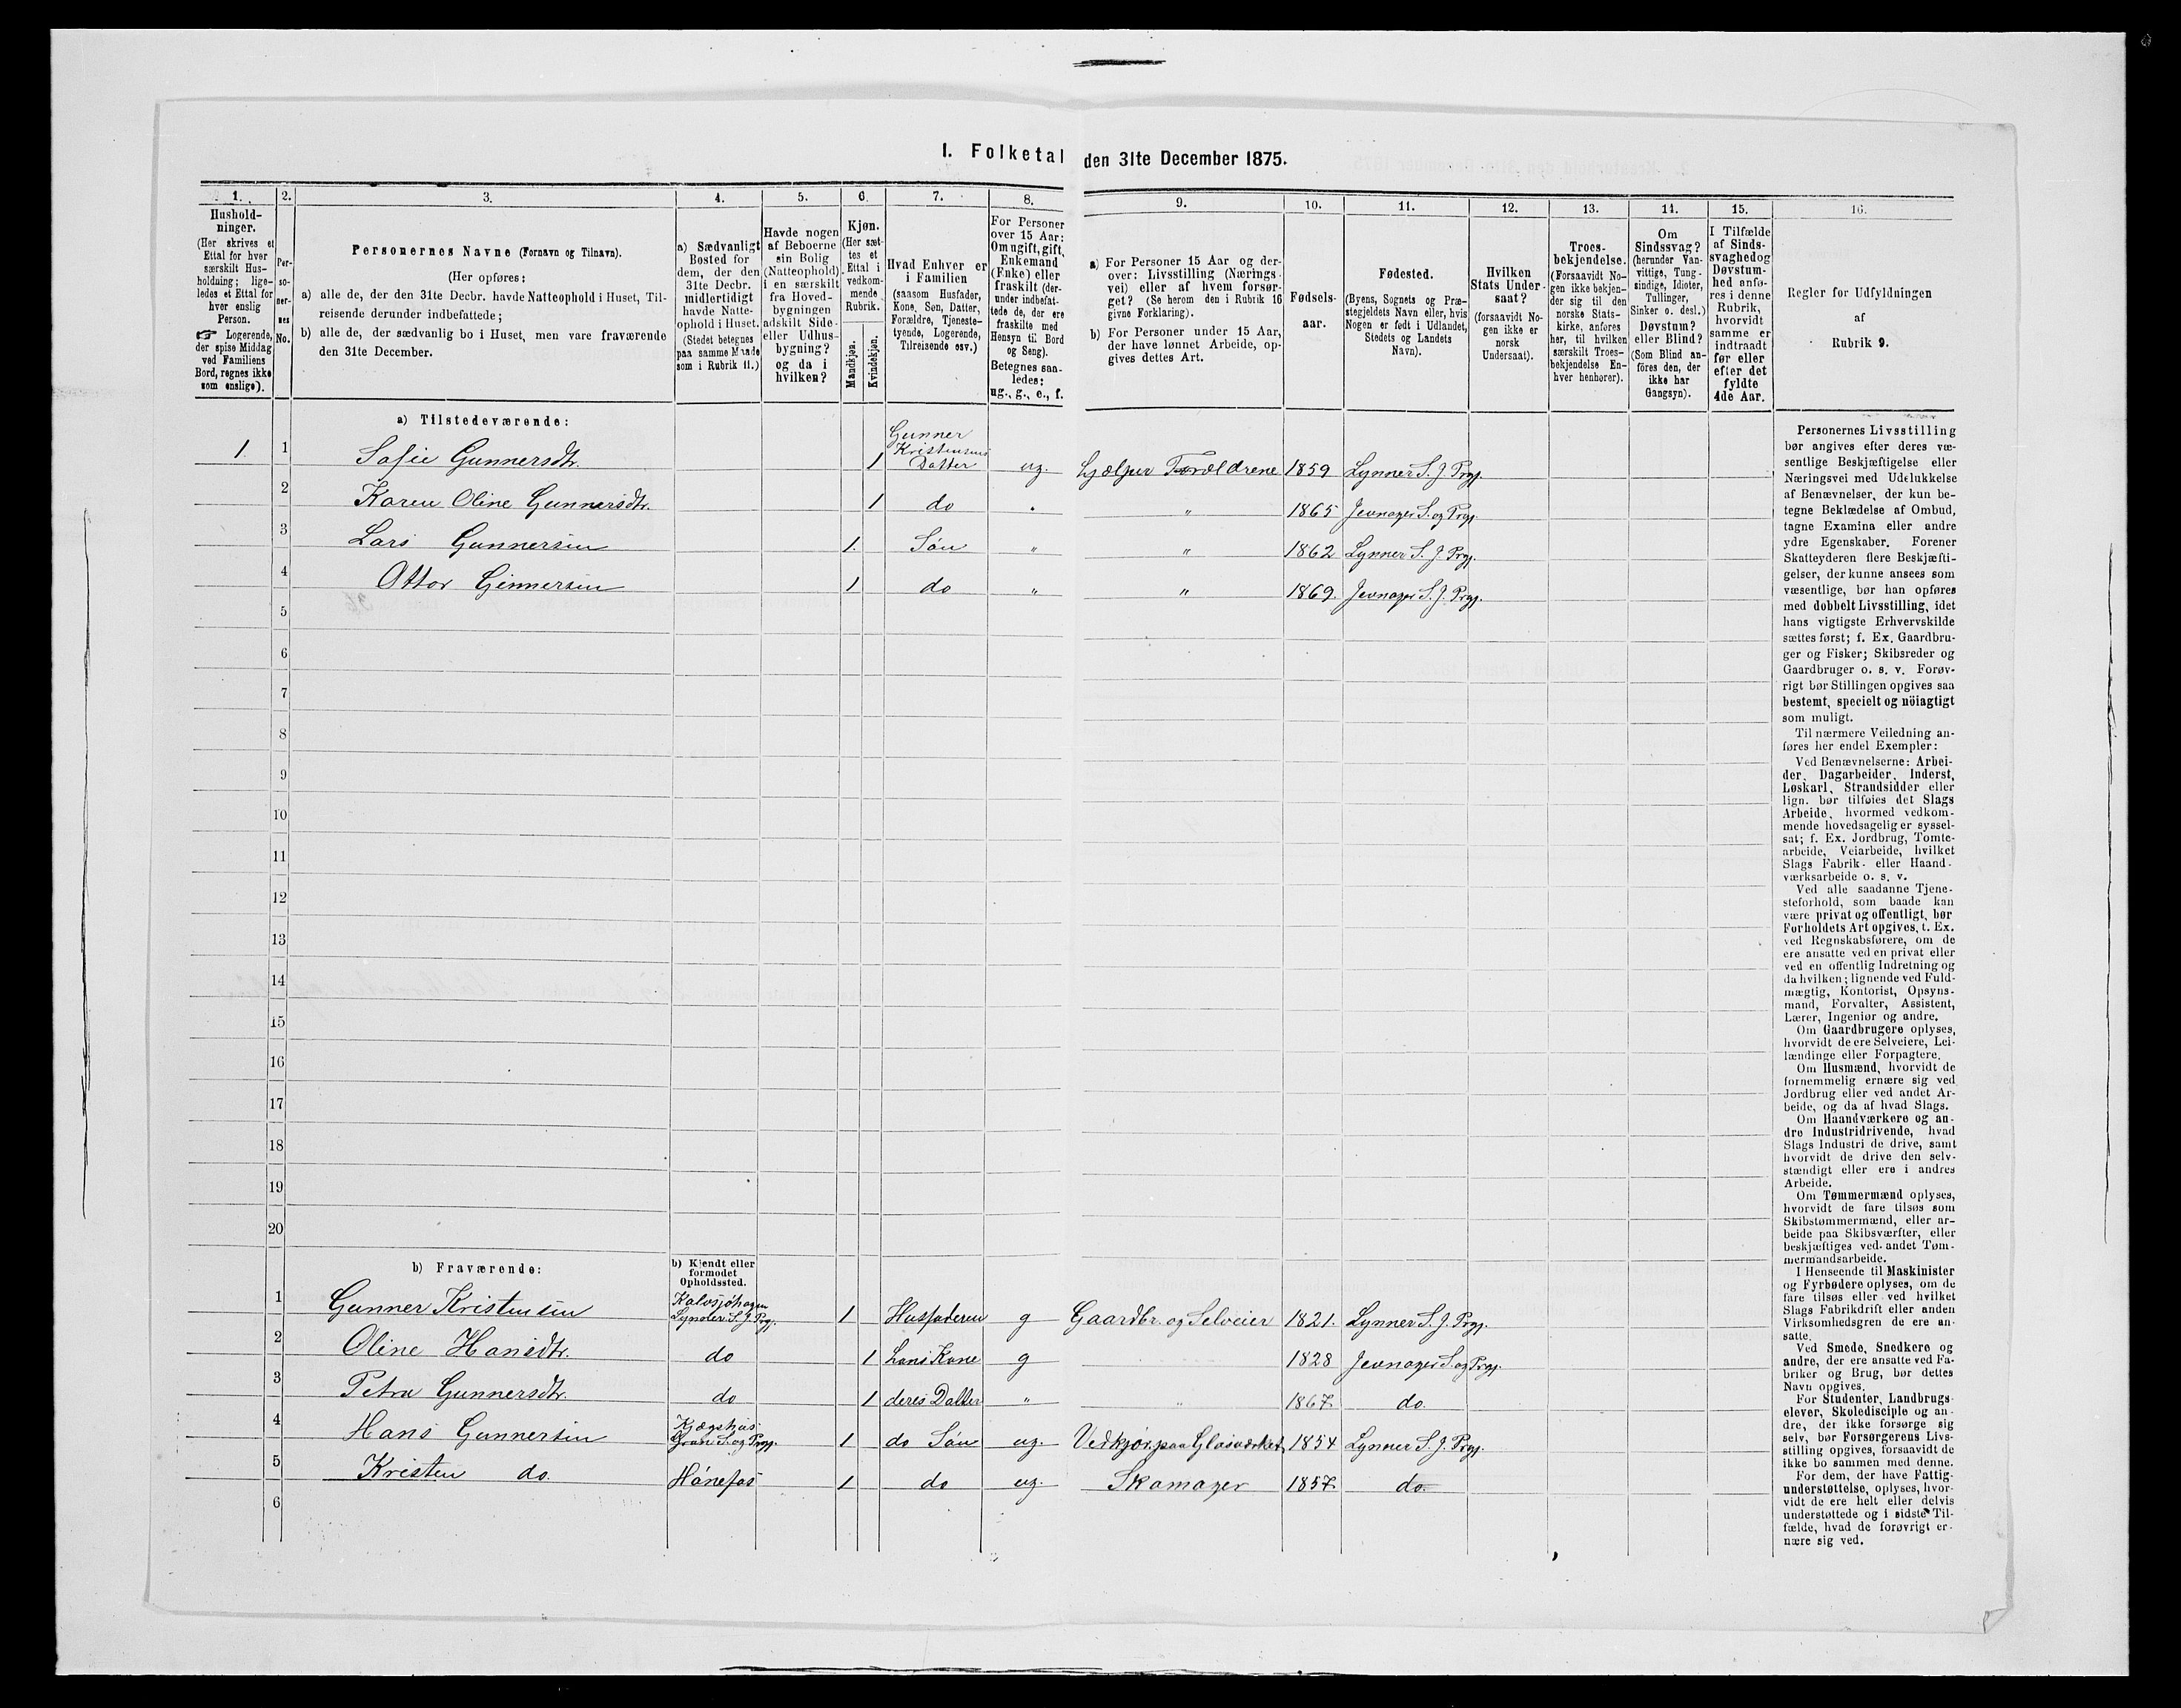 I. Folketal den 31te December 1875.
1.
Hushold-
ninger.
(Her skrives et
Ettal for hver
særskilt Hus-
holdning; lige-
ledes et Ettal for
hver enslig
Person.
☞ Logerende,
der spise Middag
ved Familiens
Bord, regnes ikke
som enslige).
2.
Per-
so-
ner-
nes
No.
3.
Personernes Navne (Fornavn og Tilnavn).
(Her opføres:
a) alle de, der den 31te Decbr. havde Natteophold i Huset, Til-
reisende derunder indbefattede;
b) alle de, der sædvanlig bo i Huset, men vare fraværende
den 31te December.
4.
a) Sædvanligt
Bosted for
dem, der den
31te Decbr.
midlertidigt
havde Natte-
ophold i Huset.
(Stedet betegnes
paa samme Maade
som i Rubrik 11.)
5.
Havde nogen
af Beboerne
sin Bolig
(Natteophold)
i en særskilt
fra Hoved-
bygningen
adskilt Side-
eller Udhus-
bygning?
og da i
hvilken?
6.
Kjøn.
(Her sæt-
tes et
Ettal i
vedkom-
mende
Rubrik.
Mandkjøn.
Kvindekjøn.
7.
Hvad Enhver er
i Familien
(saasom Husfader,
Kone, Søn, Datter,
Forældre, Tjeneste-
tyende, Logerende,
Tilreisende osv.)
8.
For Personer
over 15 Aar:
Om ugift, gift,
Enkemand
(Enke) eller
fraskilt (der-
under indbefat-
tede de, der ere
fraskilte med
Hensyn til Bord
og Seng).
Betegnes saa-
ledes:
ug., g., e., f.
9.
a) For Personer 15 Aar og der-
over: Livsstilling (Nærings-
vei) eller af hvem forsør-
get? (Se herom den i Rubrik 16
givne Forklaring).
b) For Personer under 15 Aar,
der have lønnet Arbeide, op-
gives dettes Art.
10.
Fødsels-
aar.
11.
Fødested.
(Byens, Sognets og Præ-
stegjeldets Navn eller, hvis
Nogen er født i Udlandet,
Stedets og Landets
Navn).
12.
Hvilken
Stats Under-
saat?
(forsaavidt No-
gen ikke er
norsk
Undersaat).
13.
Troes-
bekjendelse.
(Forsaavidt No-
gen ikke bekjen-
der sig til den
norske Stats-
kirke, anføres
her, til hvilken
særskilt Troes-
bekjendelse En-
hver henhører).
14.
Om
Sindssvag?
(herunder Van-
vittige, Tung-
sindige, Idioter,
Tullinger,
Sinker o. desl.)
Døvstum?
eller Blind?
(Som Blind an-
føres den, der
ikke har
Gangsyn).
15.
I Tilfælde
af Sinds-
svaghed og
Døvstum-
hed anfø-
res i denne
Rubrik,
hvorvidt
samme er
indtraadt
før eller
efter det
fyldte
4de Aar.
16.
Regler for Udfyldningen
af
Rubrik 9.
a) Tilstedeværende:
1 1 Sofie Gunnersdtr. 1 Gunner Kristensens Datter ug. hjælper Forældrene 1859 Lynner S. J. Prgj.
2 Karen Oline Gunnersdtr. 1 do " " 1865 Jevnager S. og Prgj.
3 Lars Gunnersen 1. Søn " " 1862 Lynner S. J. Prgj.
4 Ottor Ginnersen 1 do " " 1869. Jevnager S. J. Prgj.
5
6
7
8
9
10
11
12
13
14
15
16
17
18
19
20
b) Fraværende:
b) Kjendt eller
formodet
Opholdssted.
1 Gunner Kristensen Kalvsjöhagen Lynder S. J. Prgj. 1 Husfaderen g Gaardbr. og Selveier 1821. Lynner S. J. Prgj.
2 Oline Hansdtr. do 1 hans Kone g 1828 Jevnager S. og Prgj.
3 Petra Gunnersdtr. do 1 deres Datter " " 1867 do
4 Hans Gunnersen Gran S. og Prgj. 1 do Søn ug. Vedkjör. paa Glasværket 1854 Lynner S. J. Prgj.
5 Kristen do. Hönefos 1 do ug. Skomager 1857 do
6
Personernes Livsstilling
bør angives efter deres væ-
sentlige Beskjæftigelse eller
Næringsvei med Udelukkelse
af Benævnelser, der kun be-
tegne Beklædelse af Ombud,
tagne Examina eller andre
ydre Egenskaber. Forener
Skatteyderen flere Beskjæfti-
gelser, der kunne ansees som
væsentlige, bør han opføres
med dobbelt Livsstilling, idet
hans vigtigste Erhvervskilde
sættes først; f. Ex. Gaardbru-
ger og Fisker; Skibsreder og
Gaardbruger o. s. v. Forøv-
rigt bør Stillingen opgives saa
bestemt, specielt og nöiagtigt
som muligt.
Til nærmere Veiledning an-
føres her endel Exempler:
Ved Benævnelserne: Arbei-
der, Dagarbeider, Inderst,
Løskarl, Strandsidder eller
lign. bør tilføies det Slags
Arbeide, hvormed vedkom-
mende hovedsagelig er syssel-
sat; f. Ex. Jordbrug, Tomte-
arbeide, Veiarbeide, hvilket
Slags Fabrik- eller Haand-
værksarbeide o. s. v.
Ved alle saadanne Tjene-
steforhold, som baade kan
være privat og offentligt, bør
Forholdets Art opgives, t. Ex.
ved Regnskabsførere, om de
ere ansatte ved en privat eller
ved en offentlig Indretning og
da hvilken; lignende ved Fuld-
mægtig, Kontorist, Opsyns-
mand, Forvalter, Assistent,
Lærer, Ingeniør og andre.
Om Gaardbrugere oplyses,
hvorvidt de ere Selveiere, Lei-
lændinge eller Forpagtere.
Om Husmænd, hvorvidt de
fornemmelig ernære sig ved
Jordbrug eller ved andet Ar-
beide, og da af hvad Slags.
Om Haandværkere og an-
dre Industridrivende, hvad
Slags Industri de drive, samt
hvorvidt de drive den selv-
stændigt eller ere i andres
Arbeide.
Om Tømmermænd oplyses,
hvorvidt de fare tilsøs som
Skibstømmermænd, eller ar-
beide paa Skibsværfter, eller
beskjæftiges ved andet Tøm-
mermandsarbeide.
I Henseende til Maskinister
og Fyrbødere oplyses, om de
fare tilsøs eller ved hvilket
Slags Fabrikdrift eller anden
Virksomhedsgren de ere an-
satte.
Ved Smede, Snedkere og
andre, der ere ansatte ved Fa-
briker og Brug, bør dettes
Navn opgives.
For Studenter, Landbrugs-
elever, Skoledisciple og an-
dre, der ikke forsørge sig
selv, bør Forsørgerens Livs-
stilling opgives, forsaavidt de
ikke bo sammen med denne.
For dem, der have Fattig-
understøttelse, oplyses, hvor-
vidt de ere helt eller delvis
understøttede og i sidste Til-
fælde, hvad de forøvrigt er-
nære sig ved.